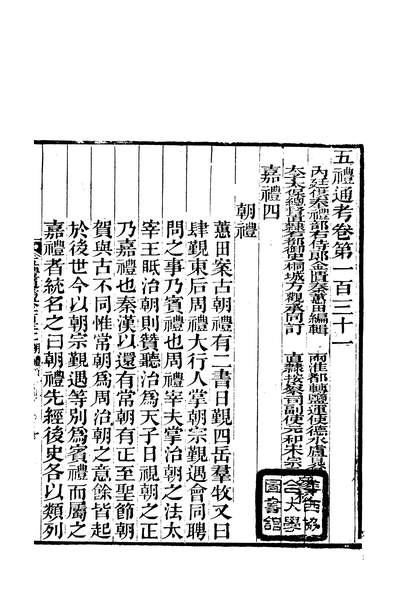 五禮通考卷第一百三十一
內廷供奉禮部右侍郎金匱秦蕙田編輯
太子太保總督直隸都御史桐城方觀承同訂
兩淮都轉鹽運使德水盧見
直隸按察司副使元和宋宗
嘉禮四
朝禮
蕙田案古朝禮有二書日覲四岳羣牧又曰
肆覲東后周禮大行人掌朝宗覲遇會同聘
問之事乃賓禮也周禮宰夫掌治朝之法太
宰王眂治朝則贊聽治爲天子日視朝之正
乃嘉禮也秦漢以還有常朝有正至聖節朝
賀與古不同惟常朝爲周治朝之意餘皆起
於後世今以朝宗覲遇等別爲賓禮而屬之
嘉禮者統名之曰朝禮先經後史各以類列